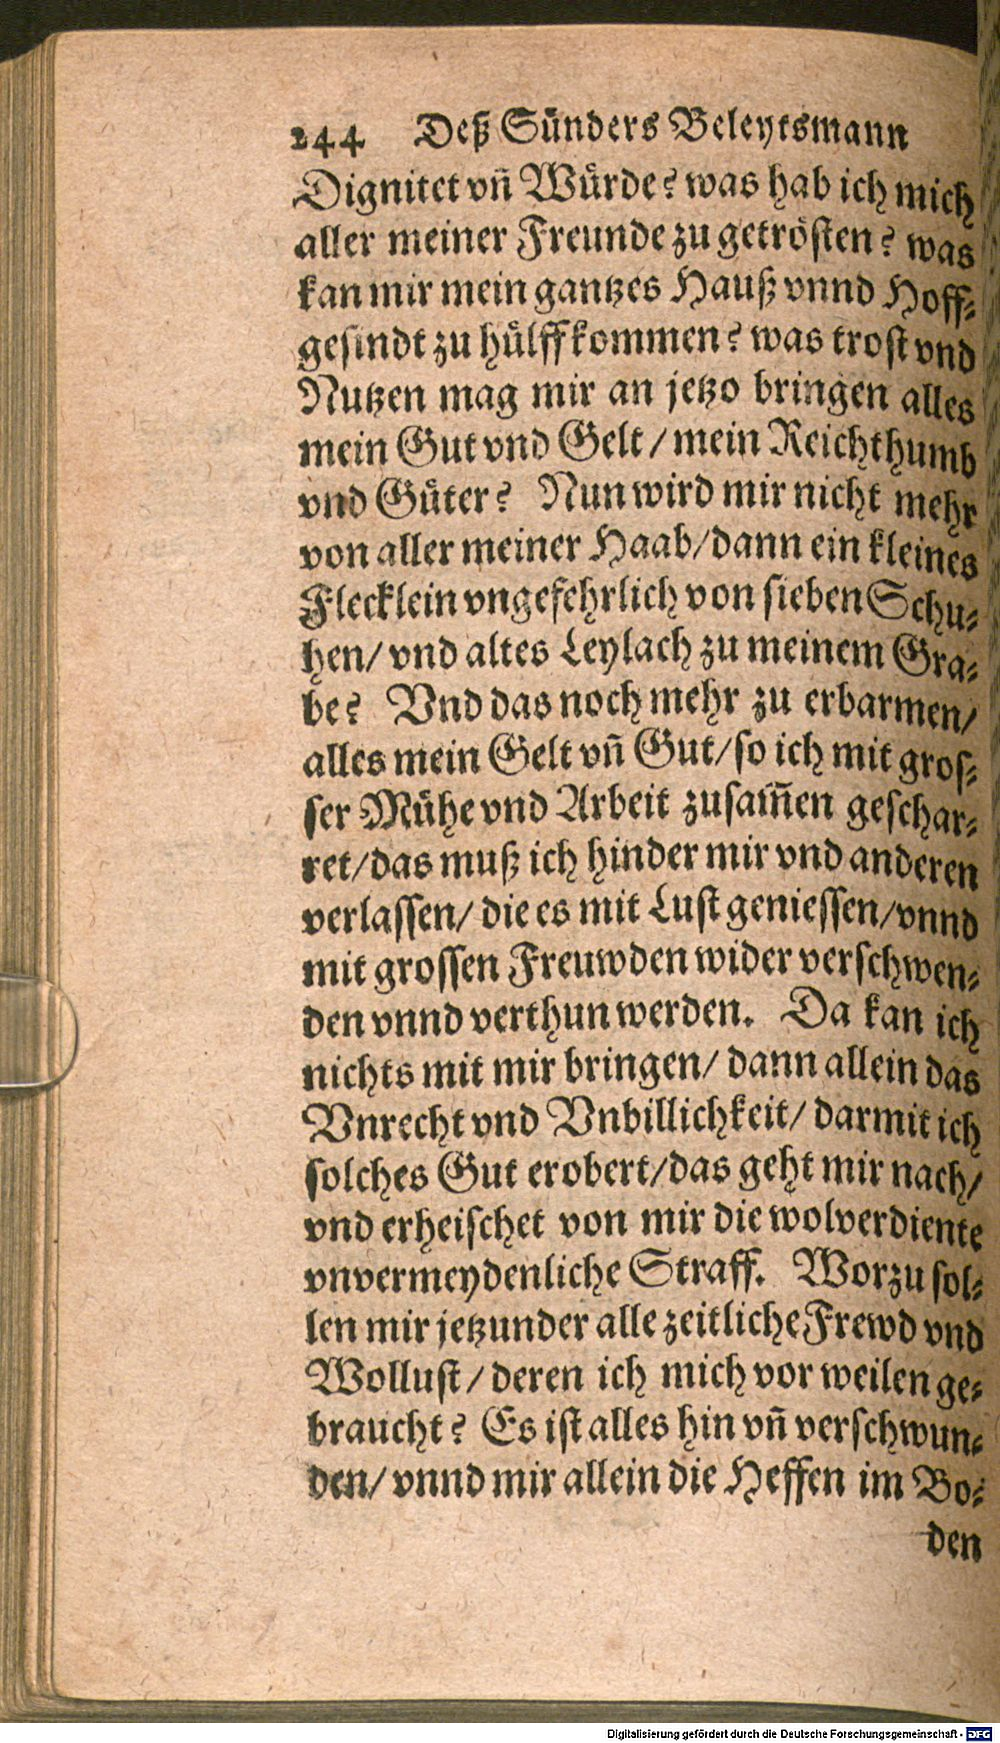 244 Deß Sünders Beleytsmann
Dignitet vñ Würde? was hab ich mich
aller meiner Freunde zu getrösten? was
kan mir mein gantzes Hauß vnnd Hoff-
gesindt zu hülff kommen? was trost vnd
Nutzen mag mir an jetzo bringen alles
mein Gut vnd Gelt / mein Reichthumb
vnd Güter? Nun wird mir nicht mehr
von aller meiner Haab/dann ein kleines
Flecklein vngefehrlich von sieben Schu-
hen/ vnd altes Leylach zu meinem Gra-
be? Vnd das noch mehr zu erbarmen/
alles mein Gelt vñ Gut/so ich mit gros-
ser Mühe vnd Arbeit zusam̃en geschar-
ret/das muß ich hinder mir vnd anderen
verlassen/ die es mit Lust geniessen/vnnd
mit grossen Freuwden wider verschwen-
den vnnd verthun werden. Da kan ich
nichts mit mir bringen/ dann allein das
Vnrecht vnd Vnbillichkeit/ darmit ich
solches Gut erobert/das geht mir nach/
vnd erheischet von mir die wolverdiente
vnvermeydenliche Straff. Worzu sol-
len mir jetzunder alle zeitliche Frewd vnd
Wollust/ deren ich mich vor weilen ge-
braucht? Es ist alles hin vñ verschwun-
den/ vnnd mir allein die Heffen im Bo-
den
Digitalisierung gefördert durch die Deutsche Forschungsgemeinschaft - DFG